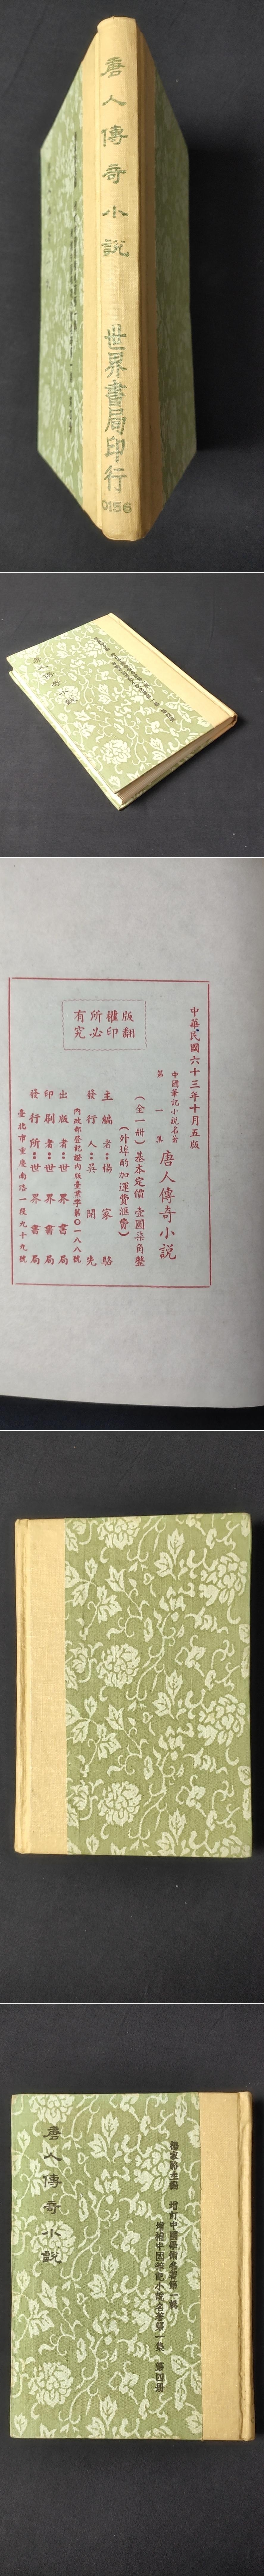 唐人傳奇小說
世界書局印行
0156
唐人傳奇小說
中華民國六十三年十月五版
中國筆記小說名著
第一集
唐人傳奇小說
(全一册)基本定價壹圓柒角整
(外埠酌加運費滙費)
主編者:楊家駱
發行人:吳開先
內政部登記證內版臺業字第〇一八八號
出版者:世界書局
印刷者:世界書局
發行所:世界書局
臺北市重慶南路一段九十九號
版權所有
翻印必究
楊家駱主編 增訂中國學術名著第一輯
增補中國筆記小說名著第一集 第四册
唐人傳奇小說